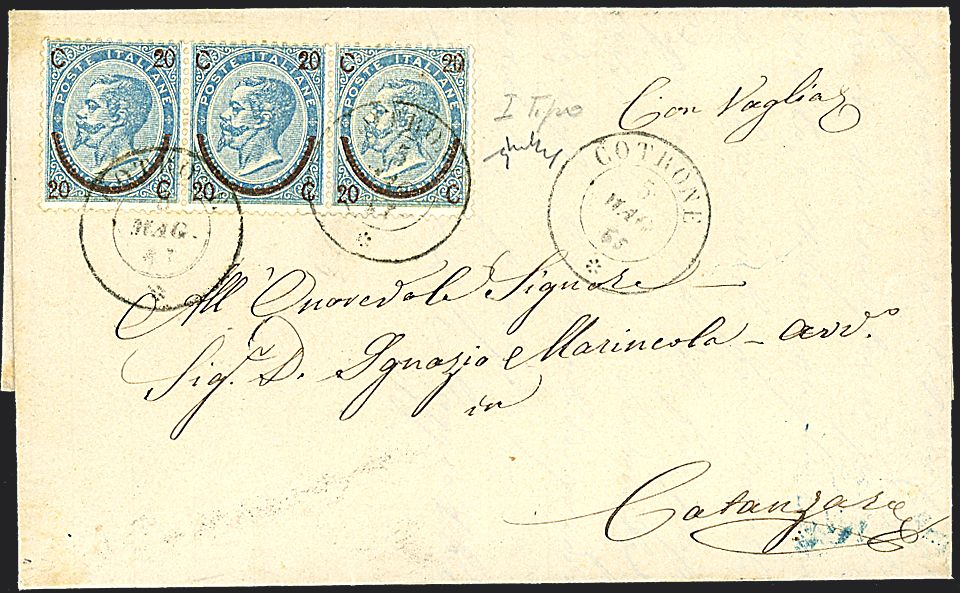 C 20 C 20 C 20
POSTE ITALIANE POSTE ITALIANE POSTE ITALIANE
20 C 20 C 20 C
I Tipo
Con Vaglia
COTRONE
MAG.
COTRONE
5
MAG
COTRONE
5
MAG
All' Onorevole Signore
Sig. D. Ignazio Marincola - Avv.º
in
Catanzaro